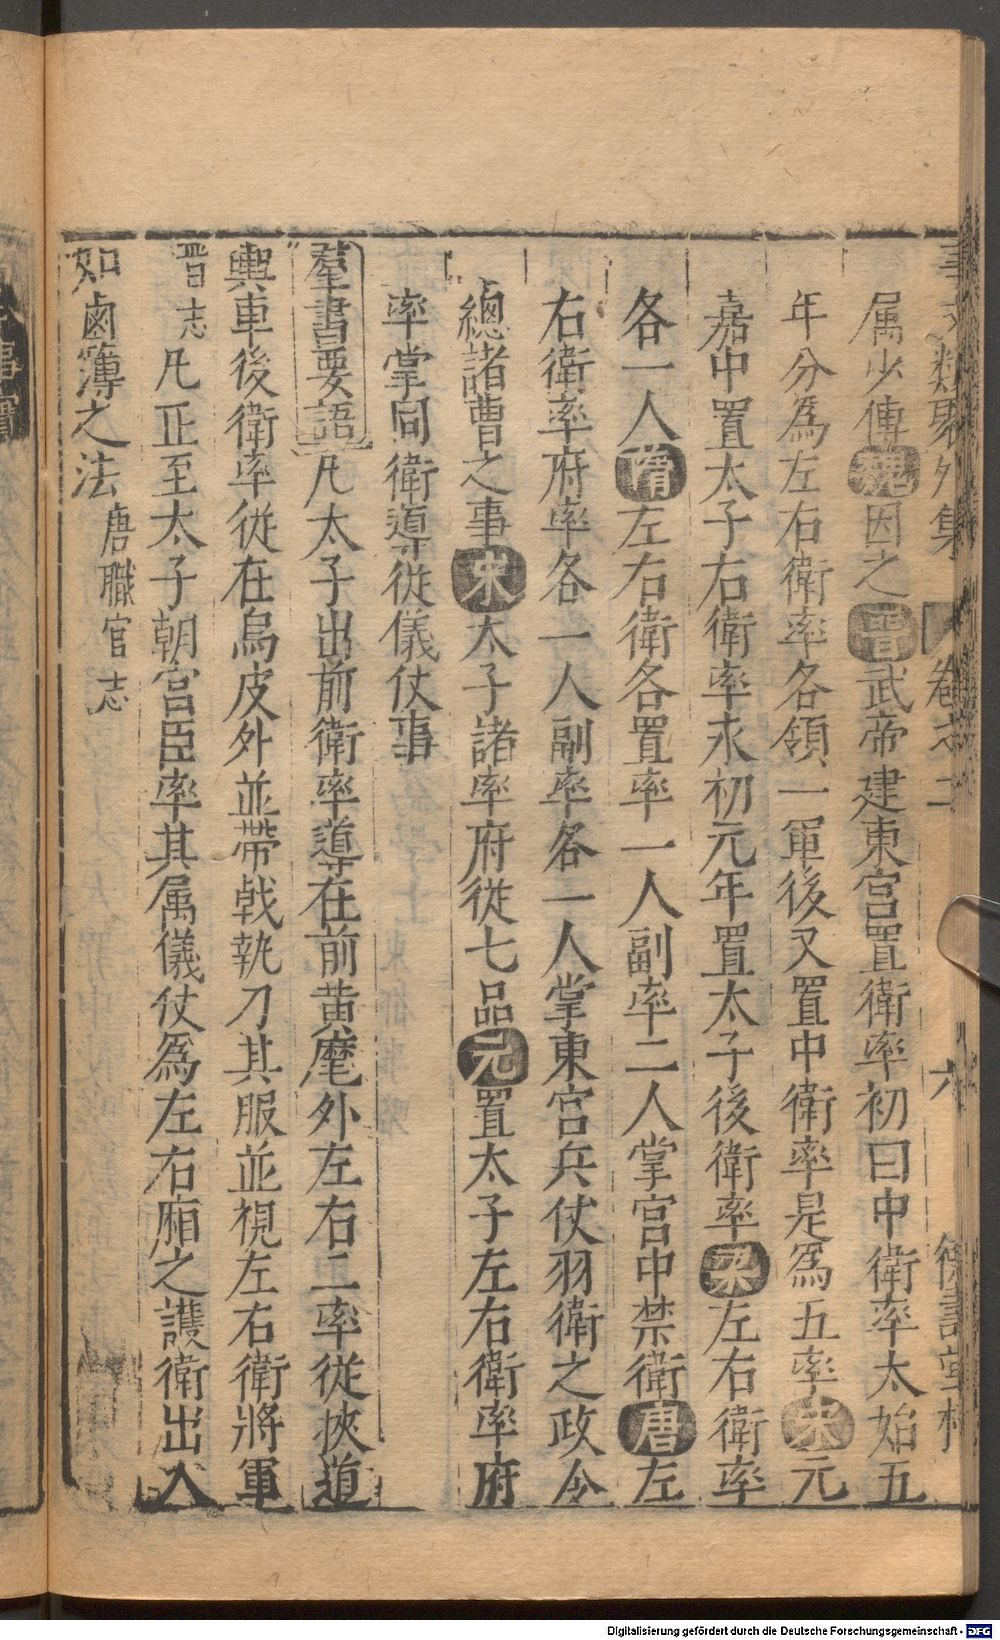 事文類聚外集 卷之二 六 德壽堂梓
属少傅魏因之晋武帝建東宫置衛率初曰中衛率太始五
年分爲左右衛率各領一軍後又置中衛率是爲五率宋元
嘉中置太子右衛率永初元年置太子後衛率梁左右衛率
各一人隋左右衛各置率一人副率二人掌宫中禁衛唐左
右衛率府率各一人副率各一人掌東宫兵仗羽衛之政令
總諸曹之事宋太子諸率府從七品元置太子左右衛率府
率掌同衛導從儀仗事
羣書要語凡太子出前衛率導在前黄麾外左右二率從挾道
輿車後衛率從在烏皮外並帶戟執刀其服並視左右衛將軍
晋志凡正至太子朝宫臣率其属儀仗爲左右廂之護衛出入
如鹵簿之法唐職官志
Digitalisierung gefördert durch die Deutsche Forschungsgemeinschaft - DFG